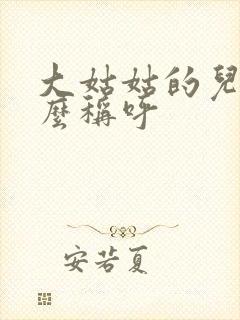 大姑姑的兒
麼稱呼
安若夏